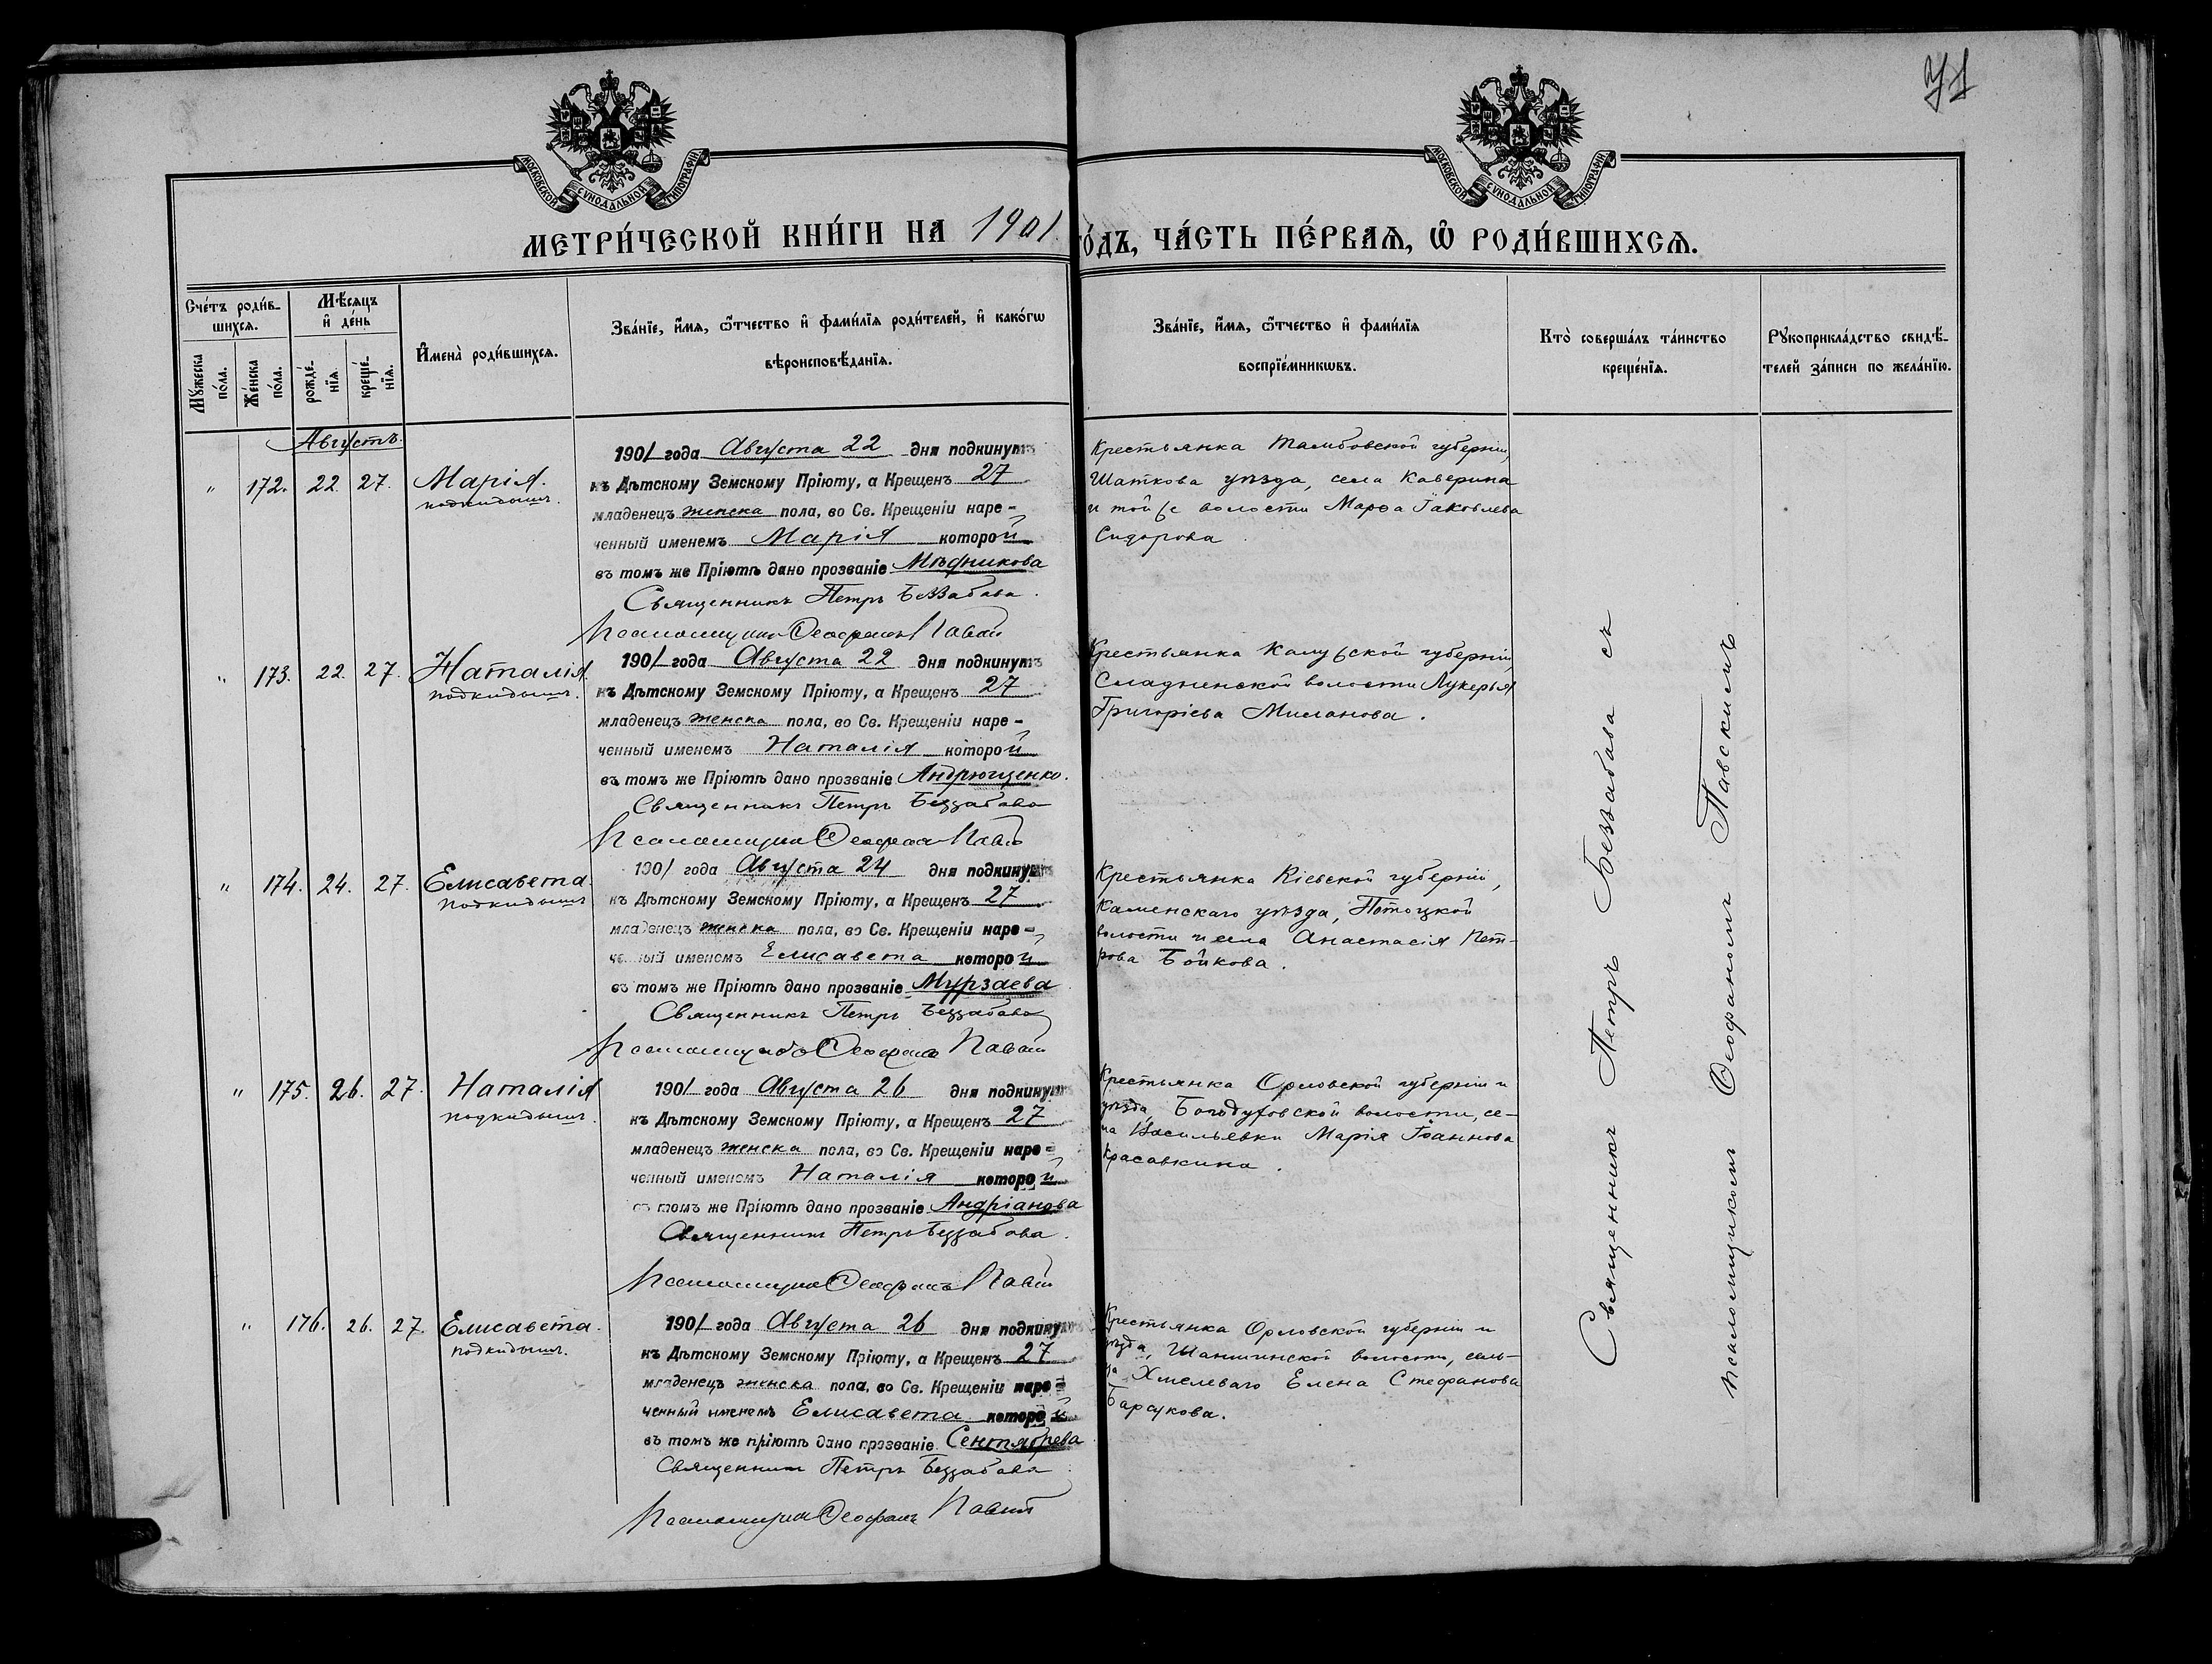 71
МОСКОВСКОЙ СѴНОДАЛЬНОЙ ТИПОГРАФІИ
МОСКОВСКОЙ СѴНОДАЛЬНОЙ ТИПОГРАФІИ
МЕТРИ́ЧЕСКОЙ КНИ́ГИ НА 1901 ГО́ДЪ, ЧА́СТЬ ПЕ́РВАѦ, Ѡ҆ РОДИ́ВШИХСѦ.
Сче́тъ роди́в-
шихсѧ.
Мꙋжеска по́ла.
Же́нска по́ла.
Мѣ́сѧцъ и҆ де́нь
рожде́-нїѧ.
креще́-нїѧ.
И҆мена̀ роди́вшихсѧ.
Зва́нїе, и҆́мѧ, ѻ҆́тчество и҆ фами́лїѧ роди́телей, и҆ како́гѡ
вѣроисповѣ́данїѧ.
Зва́нїе, и҆́мѧ, ѻ҆́тчество и҆ фами́лїѧ
воспрїе́мникѡвъ.
Кто̀ соверша́лъ та́инство
креще́нїѧ.
Рꙋкоприкла́дство свидѣ́-
телей за́писи по жела́нїю.
Августъ.
" 172. 22. 27. Марія.
подкидышъ.
1901 года Августа 22 дня подкинутъ
къ Дѣтскому Земскому Пріюту, а Крещенъ 27
младенецъ женска пола, во Св. Крещеніи наре-
ченный именемъ Марія которой
въ томъ же Пріютѣ дано прозваніе Мѣдникова
Священникъ Петръ Беззабава.
Псаломщикъ Ѳеофанъ
Крестьянка Тамбовской губерніи,
Шаткова уѣзда, села Каверина
и той же волости Марѳа Іаковлева
Сидорова.
" 173. 22. 27. Наталія.
подкидышъ.
1901 года Августа 22 дня подкинутъ
къ Дѣтскому Земскому Пріюту, а Крещенъ 27
младенецъ женска пола, во Св. Крещеніи наре-
ченный именемъ Наталія которой
въ томъ же Пріютѣ дано прозваніе Андрющенко.
Священникъ Петръ Беззабава
Псаломщикъ Ѳеофанъ
Крестьянка Калужской губерніи
волости Лукерья
Григоріева Миланова.
" 174. 24. 27. Елисавета.
подкидышъ
1901 года Августа 24 дня подкинутъ
къ Дѣтскому Земскому Пріюту, а Крещенъ 27
младенецъ женска пола, во Св. Крещеніи наре-
ченный именемъ Елисавета которой
въ томъ же Пріютѣ дано прозваніе Мурзаева
Священникъ Петръ Беззабава
Псаломщикъ Ѳеофанъ
Крестьянка Кіевской губерніи,
Каменскаго уѣзда, Потоцкой
волости и села Анастасія Пет-
рова Бойкова.
" 175. 26. 27. Наталія
подкидышъ.
1901 года Августа 26 дня подкинутъ
къ Дѣтскому Земскому Пріюту, а Крещенъ 27
младенецъ женска пола, во Св. Крещеніи наре-
ченный именемъ Наталія которой
въ томъ же Пріютѣ дано прозваніе Андріанова
Священникъ Петръ Беззабава.
Псаломщикъ Ѳеофанъ
Крестьянка Орловской губерніи и
уѣзда, Богодуховской волости, се-
ла Васильевки Марія Іоаннова
Красавкина.
" 176. 26. 27. Елисавета.
подкидышъ.
1901 года Августа 26 дня подкинутъ
къ Дѣтскому Земскому Пріюту, а Крещенъ 27
младенецъ женска пола, во Св. Крещеніи наре-
ченный именемъ Елисавета которой
въ томъ же пріютѣ дано прозваніе Сентябрева
Священникъ Петръ Беззабава
Псаломщикъ Ѳеофанъ
Крестьянка Орловской губерніи и
уѣзда, волости, сель-
ца Хмелеваго Елена Стефанова
Барсукова.
Священникъ Петръ Беззабава съ
псаломщикомъ Ѳеофаномъ Павскимъ.